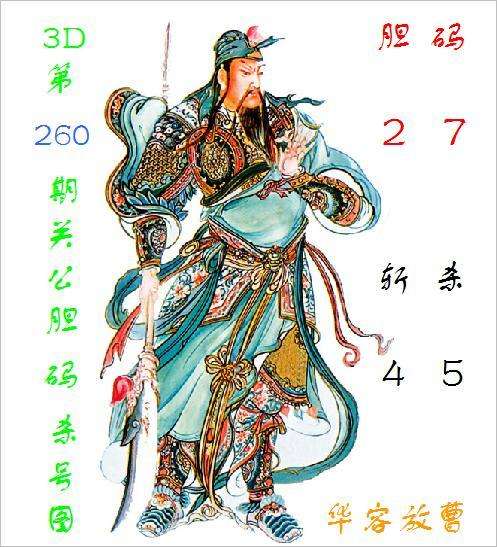 3D
第
260
期关公胆码杀号图
胆码
2 7
斩杀
4 5
华容放曹